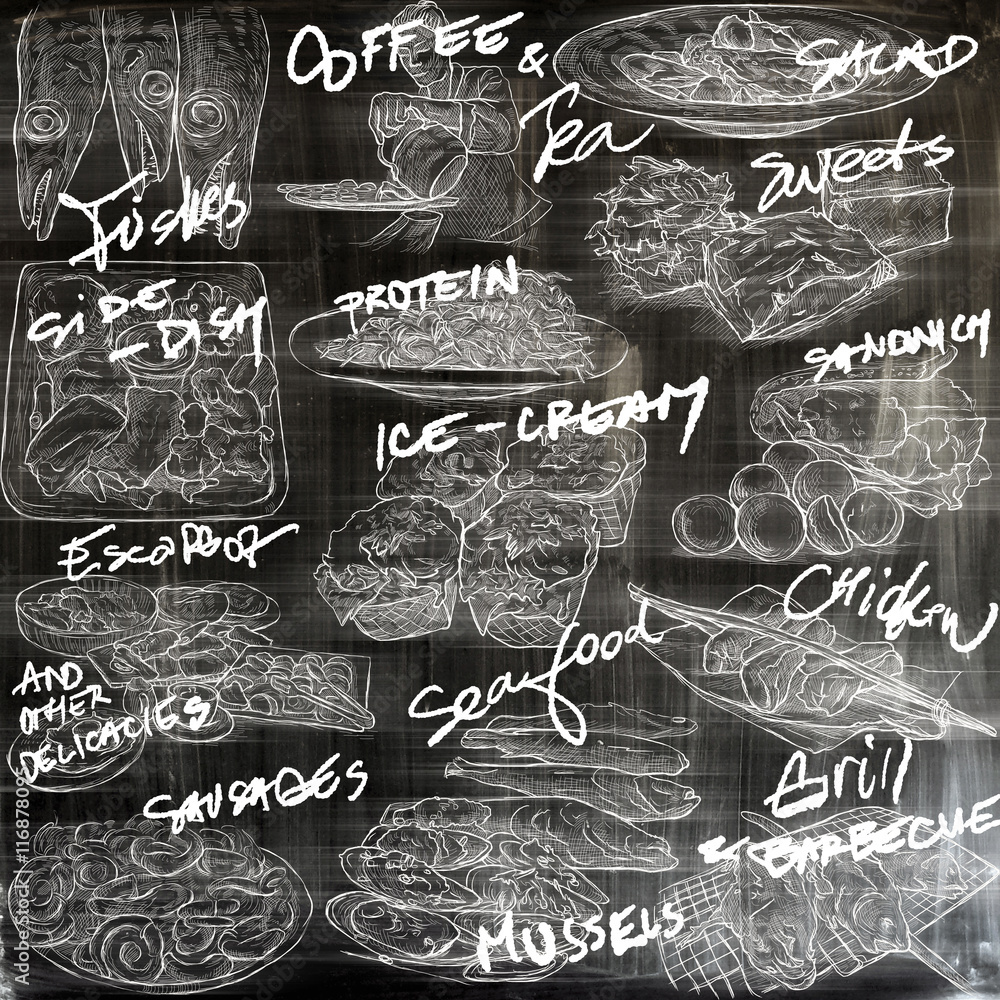 COFFEE &
Tea
SALAD
Sweets
Fishes
SiDE
- DISH
PROTEIN
SANDWICH
ICE-CREAM
ESCARGOT
CHicken
AND
OTHER
DELICACIES
Seafood
SAUSAGES
Grill
& BARBECUE
MUSSELS
Adobe Stock | #116878095